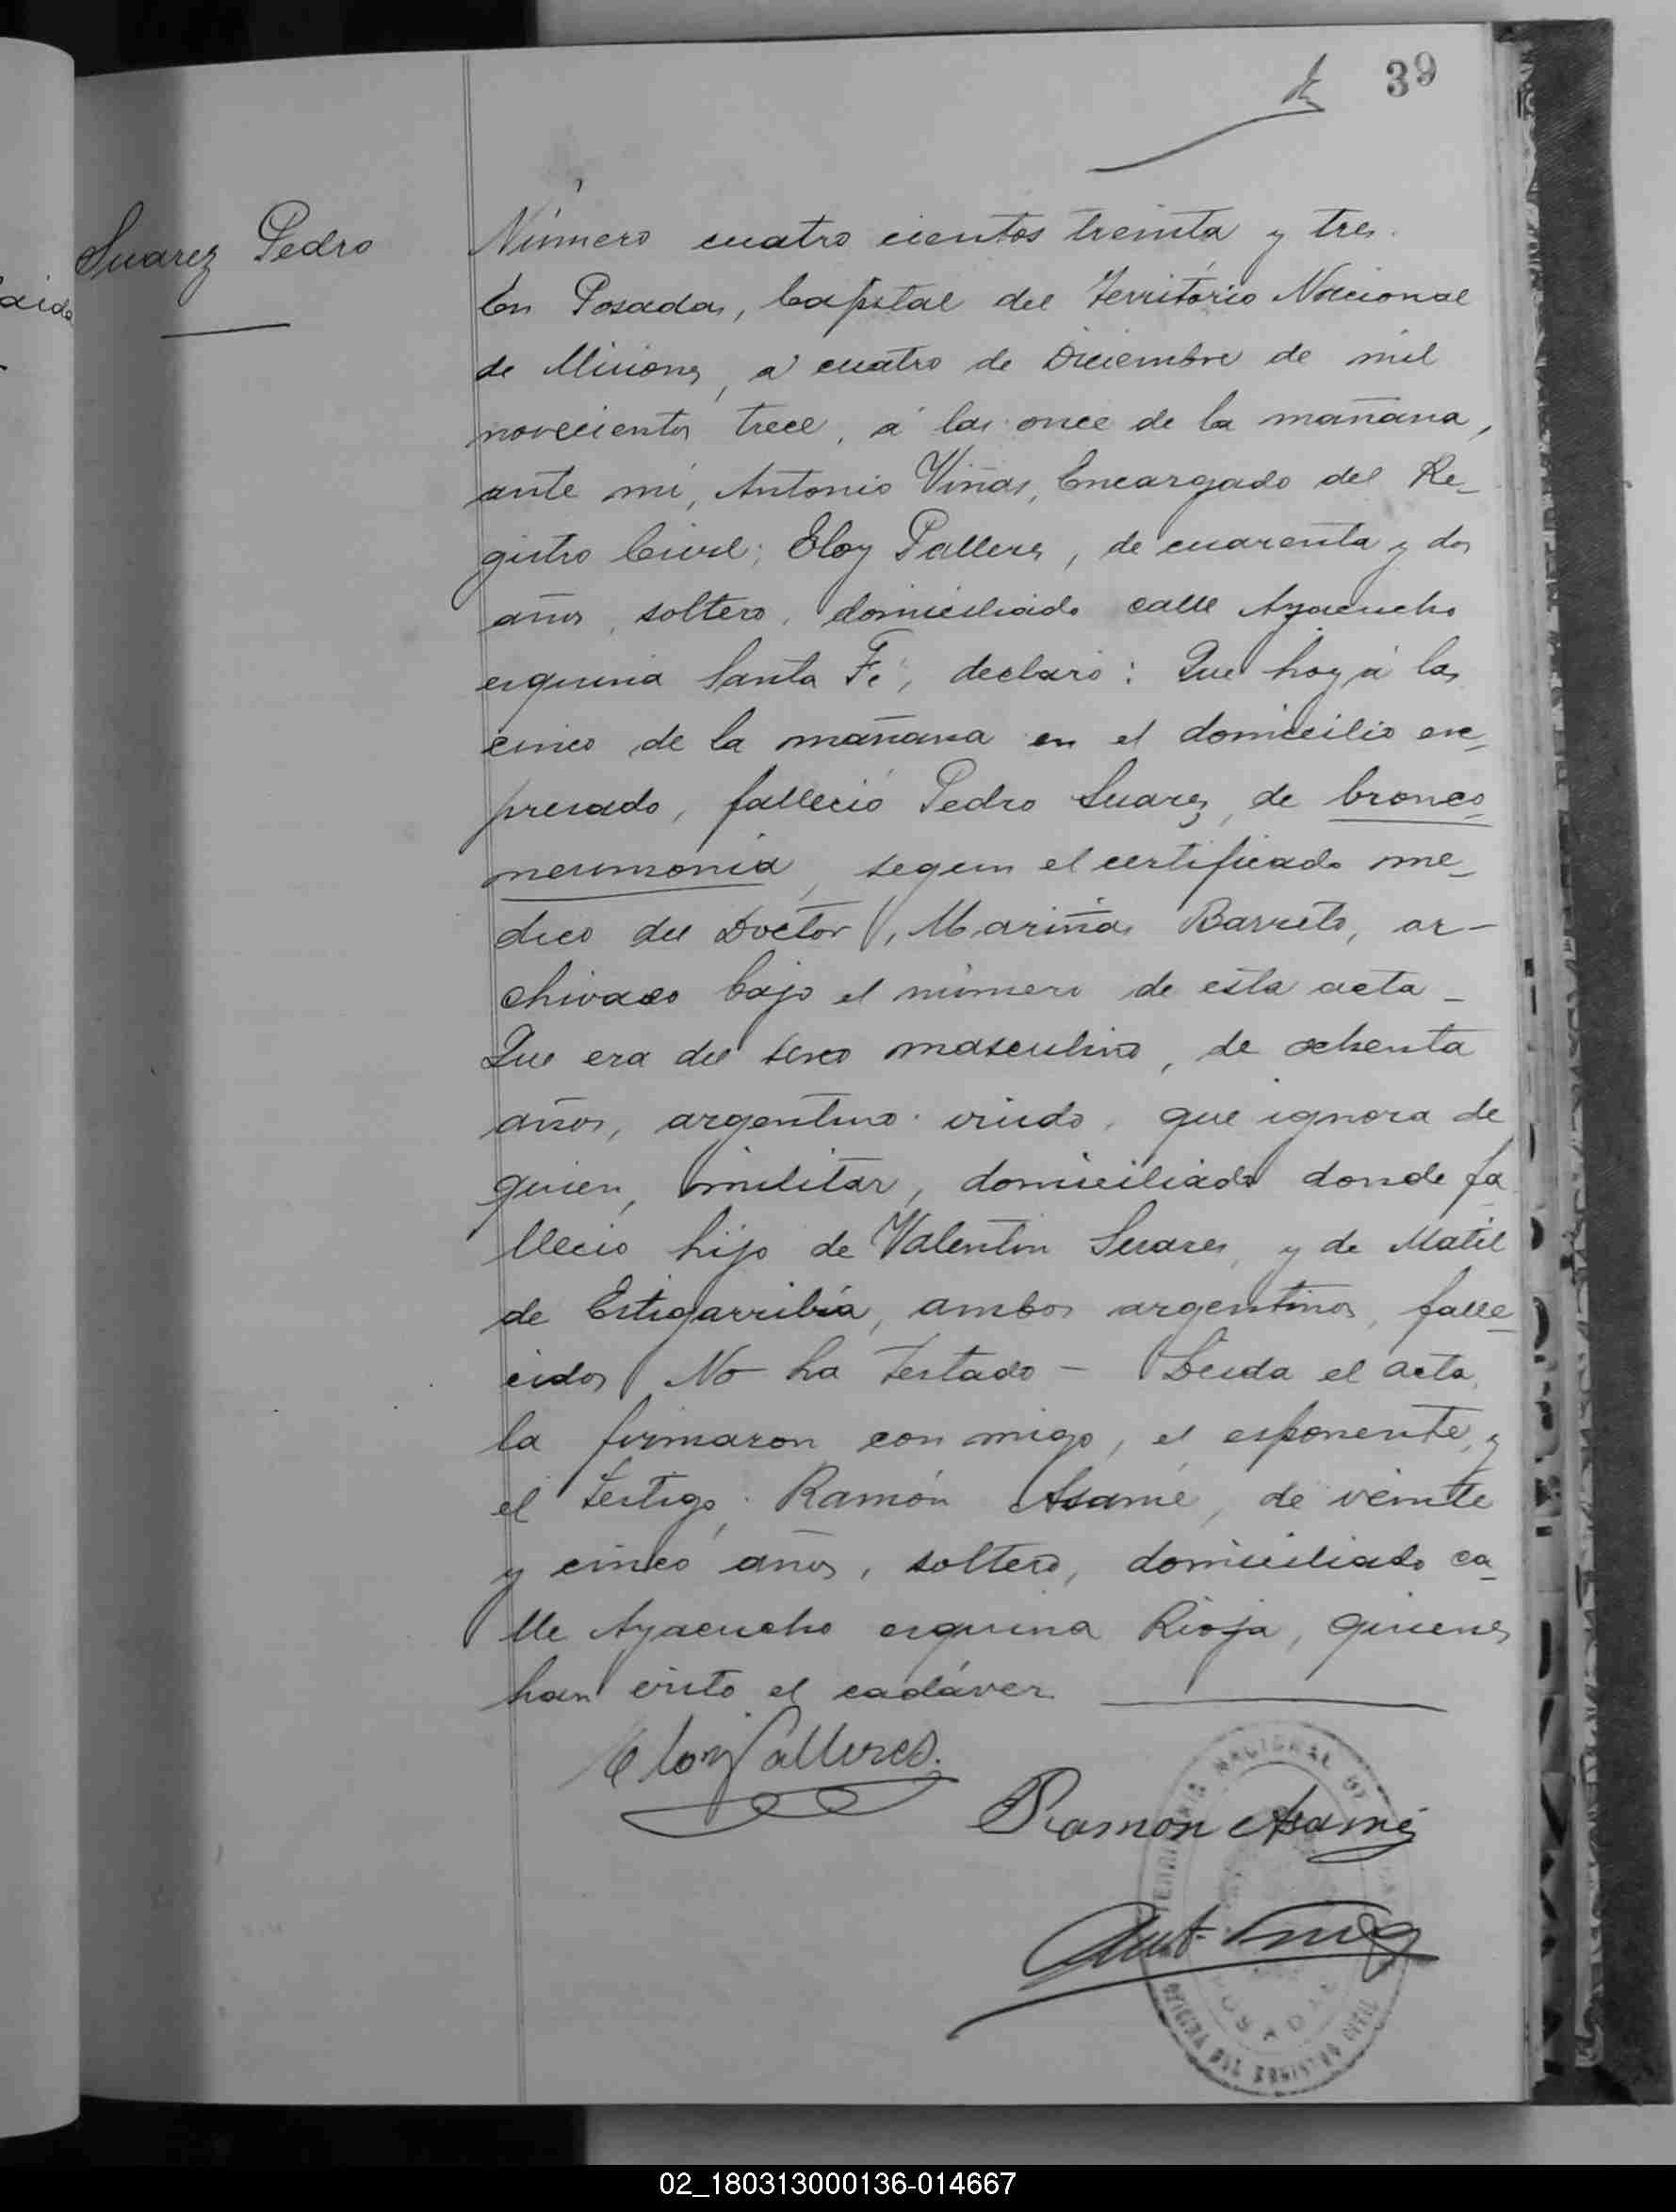 39
Suarez Pedro
Número cuatro cientos treinta y tres.
En Posadas, Capital del Territorio Nacional
de Misiones, á cuatro de Diciembre de mil
novecientos trece, á las once de la mañana,
ante mi, Antonio Viñas, Encargado del Re-
gistro Civil; Eloy Palleres, de cuarenta y dos
años, soltero, domiciliado calle Ayacucho
esquina Santa Fé, declaró: Que hoy á las
cinco de la mañana en el domicilio ex-
presado, falleció Pedro Suarez, de bronco-
neumonia, segun el certificado me-
dico del Doctor, Mariñas Barreto, ar-
chivado bajo el número de esta acta -
Que era del sexo masculino, de ochenta
años, argentino viudo, que ignora de
quien, militar, domiciliado donde fa
llecio hijo de Valentin Suares, y de Matil
de Estigarribia, ambos argentinos, falle-
cidos No ha testado - Leida el acta,
la firmaron con migo, el esponente, y
el testigo, Ramón Asamé, de veinte
y cinco años, soltero, domiciliado ca-
lle Ayacucho esquina Rioja, quienes
han visto el cadáver.
Eloy Palleres.
Ramón Asamé
TERRITORIO NACIONAL DE
POSADAS
OFICINA DEL REGISTRO CIVIL
02_180313000136-014667